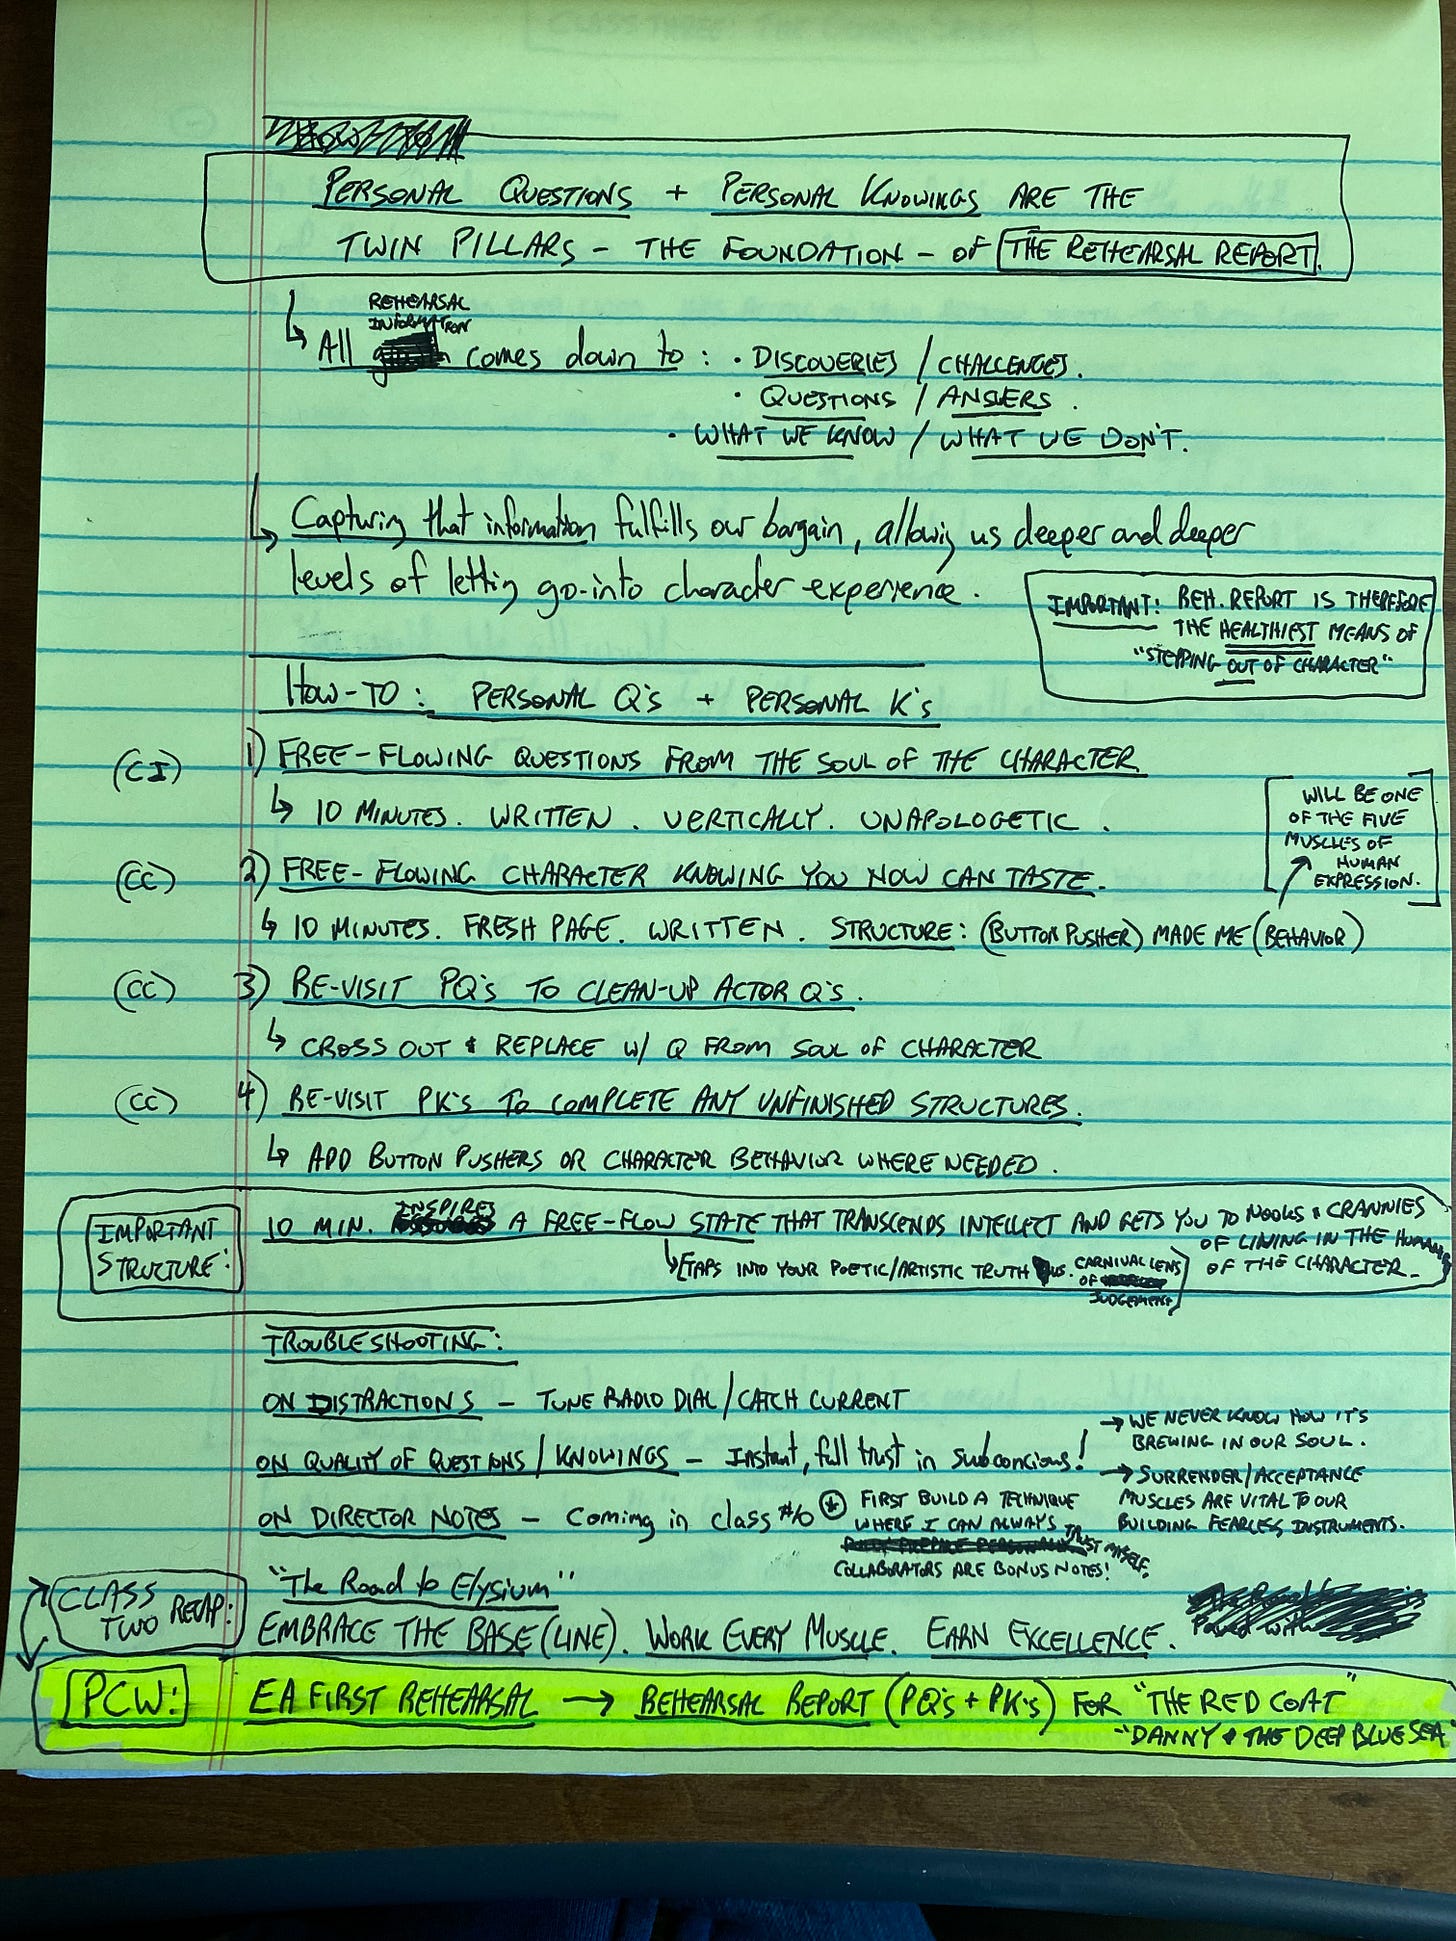 PERSONAL QUESTIONS + PERSONAL KNOWINGS ARE THE
TWIN PILLARS – THE FOUNDATION – OF THE REHEARSAL REPORT.
REHEARSAL
INFORMATION
↳ All comes down to : · DISCOVERIES / CHALLENGES.
· QUESTIONS / ANSWERS .
· WHAT WE KNOW / WHAT WE DON'T.
↳ Capturing that information fulfills our bargain, allowing us deeper and deeper
levels of letting go-into character experience.
IMPORTANT: REH. REPORT IS THEREFORE
THE HEALTHIEST MEANS OF
"STEPPING OUT OF CHARACTER"
HOW-TO: PERSONAL Q's + PERSONAL K's
(CI) 1) FREE-FLOWING QUESTIONS FROM THE SOUL OF THE CHARACTER
↳ 10 MINUTES. WRITTEN. VERTICALLY. UNAPOLOGETIC.
WILL BE ONE
OF THE FIVE
MUSCLES OF
HUMAN
EXPRESSION.
(CC) 2) FREE-FLOWING CHARACTER KNOWING YOU NOW CAN TASTE.
↳ 10 MINUTES. FRESH PAGE. WRITTEN. STRUCTURE: (BUTTON PUSHER) MADE ME (BEHAVIOR)
(CC) 3) RE-VISIT PQ's TO CLEAN-UP ACTOR Q's.
↳ CROSS OUT & REPLACE W/ Q FROM SOUL OF CHARACTER
(CC) 4) RE-VISIT PK's TO COMPLETE ANY UNFINISHED STRUCTURES.
↳ ADD BUTTON PUSHERS OR CHARACTER BEHAVIOR WHERE NEEDED.
IMPORTANT
STRUCTURE:
10 MIN. INSPIRES A FREE-FLOW STATE THAT TRANSCENDS INTELLECT AND GETS YOU TO NOOKS & CRANNIES
OF LIVING IN THE HUMANITY
OF THE CHARACTER.
↳ [TAPS INTO YOUR POETIC/ARTISTIC TRUTH vs. CARNIVAL LENS
OF
JUDGEMENT]
TROUBLESHOOTING:
ON DISTRACTIONS – TUNE RADIO DIAL/CATCH CURRENT
ON QUALITY OF QUESTIONS/KNOWINGS – Instant, full trust in subconcious!
→ WE NEVER KNOW HOW IT'S
BREWING IN OUR SOUL.
→ SURRENDER/ACCEPTANCE
MUSCLES ARE VITAL TO OUR
BUILDING FEARLESS INSTRUMENTS.
ON DIRECTOR NOTES – Coming in class #10 * FIRST BUILD A TECHNIQUE
WHERE I CAN ALWAYS TRUST MYSELF.
COLLABORATORS ARE BONUS NOTES!
CLASS
TWO RECAP:
"The Road to Elysium"
EMBRACE THE BASE(LINE). WORK EVERY MUSCLE. EARN EXCELLENCE.
PCW: EA FIRST REHEARSAL → REHEARSAL REPORT (PQ's + PK's) FOR "THE RED COAT"
"DANNY & THE DEEP BLUE SEA